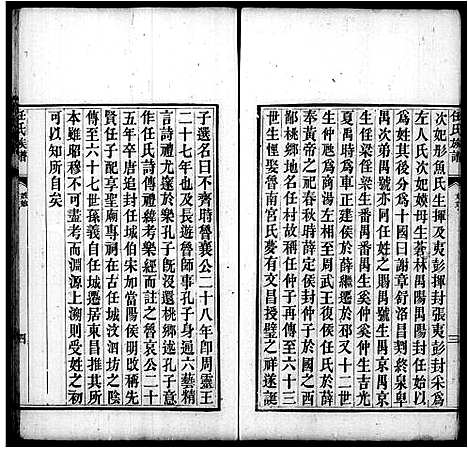 任氏族譜
三
次妃彤魚氏生揮及夷彭揮封張夷彭封采為
左人氏次妃嫫母生蒼林禺陽禺陽封任始以
為姓其後分為十國曰謝章舒洛昌終泉卑
禺次弟禺號亦阿任姓故賜之禺號生禺京
生任梁任梁生番禺番禺生奚仲奚仲生吉光
夏禹時為車正建侯於薛繼遷於邳又十二世
生仲虺為商湯左相至周武王復侯任氏於薛
奉黃帝之祀春秋時薛定侯封仲子於國之西
鄙桃鄉地以仲子俱存任姓仲子而後至六十三
世生恆娶南宮氏夢有文昌授璧之祥遂誕
子選名曰不齊時魯襄公二十八年卽周靈王
二十七年也及長遊於魯孔子身通六藝精
言詩禮尤邃於樂孔子旣沒還桃鄉述孔子意
作任氏詩傳禮緯考樂經而註之魯哀公二十
五年卒唐追封任城伯宋加當陽侯明改稱先
賢任子配享聖廟專祠在古任城汶泗坊之陰
傳至六十七世孫義自任城遷居東昌推其所
本雖昭穆不可盡考而淵源上溯則受姓之初
可以知所自矣
任氏族譜
四